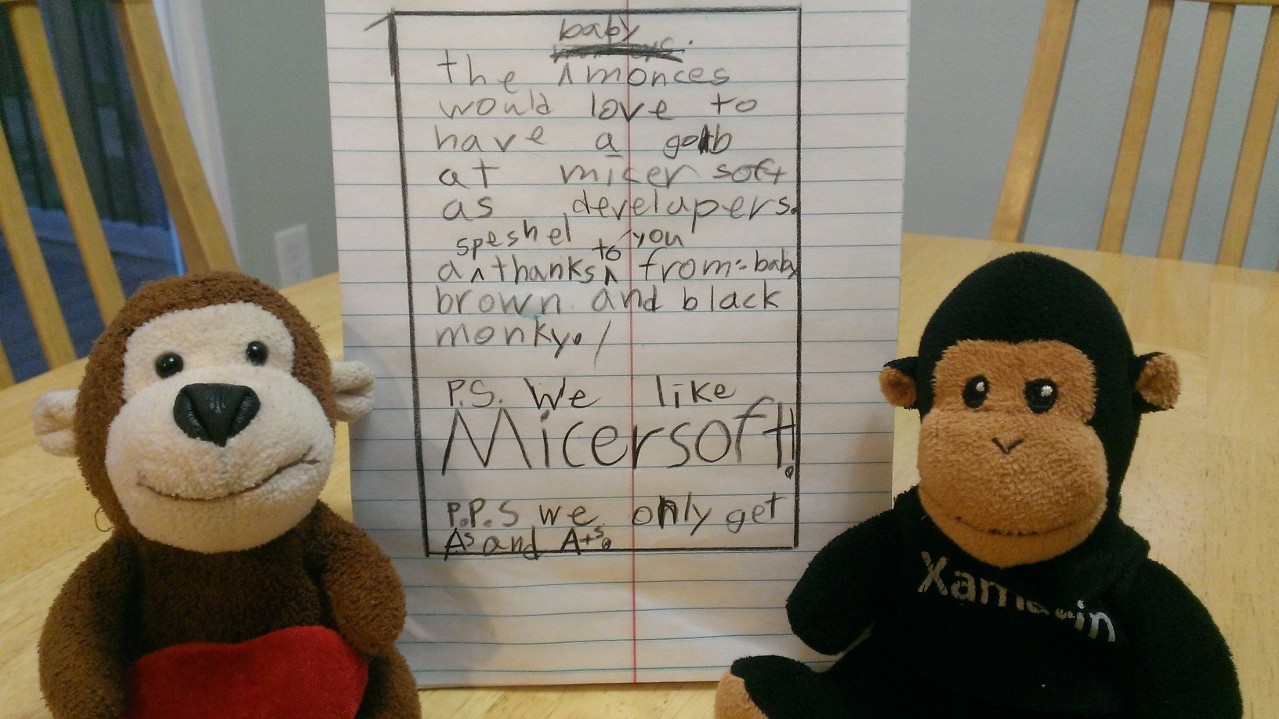 baby
the ^ monces
would love to
have a gob
at micer soft
as develapers.
speshel to you
a ^ thanks ^ from:-baby
brown and black
monky. /
P.S. We like
Micersoft!
P.P.S we only get
As and A+s.
Xamarin